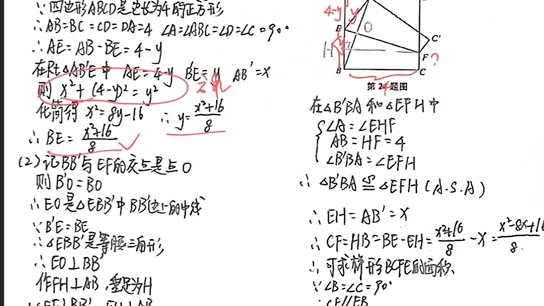 ∵四边形ABCD是边长为4的正方形
∴AB=BC=CD=DA=4 ∠A=∠ABC=∠D=∠C=90°
∴AE=AB-BE=4-y
在Rt△AB'E中 AE=4-y B'E=y AB'=x
则 x²+(4-y)²=y²
化简得 x²=8y-16 ∴y=\frac{x²+16}{8}
∴BE=\frac{x²+16}{8}
(2)记BB'与EF的交点是点O
则B'O=BO
∴EO是△EBB'中BB'边上的中线
∵B'E=BE
∴△EBB'是等腰三角形
∴EO⊥BB'
作FH⊥AB,垂足为H
4-y
y
O
E
C'
H
F
B
C
?
第24题图
4
在△B'BA和△EFH中
∠A=∠EHF
AB=HF=4
∠B'BA=∠EFH
∴△B'BA≌△EFH(A.S.A)
∴EH=AB'=x
∴CF=HB=BE-EH=\frac{x²+16}{8}-x=\frac{x²-8x+16}{8}
∴可求梯形BCFE的面积
∵∠B=∠C=90°
∴CF//EB